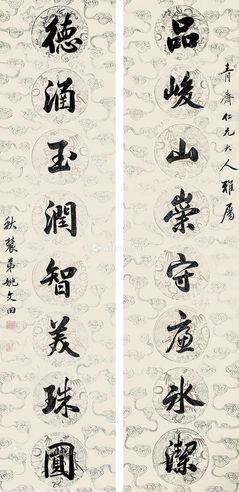 青齋仁兄大人雅屬
品峻山崇守廉冰潔
德涵玉潤智美珠圓
秋農弟姚文田